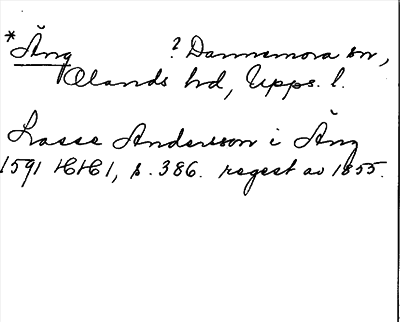 *Äng ? Dannemora sn,
Olands hd, Upps. l.
Lasse Andersson i Äng
1591 HH1, s. 386. regest av 1855.